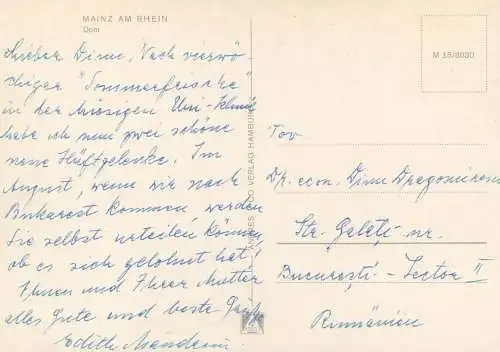 MAINZ AM RHEIN
Dom
Lieber Dinu, Nach vierwö-
chiger "Sommerfrische"
in der hiesigen Uni-Klinik
habe ich nun zwei schöne
neue Hüftgelenke. Im
August, wenn wir nach
Bukarest kommen, werden
Sie selbst urteilen können
ob es sich gelohnt hat!
Ihnen und Ihrer Mutter
alles Gute und beste Grüße
Edith
VERLAG HAMBURG
M 15/9030
Tov
Dr. econ. Dinu
Str. Galați nr.
București - Sector II
Rumänien